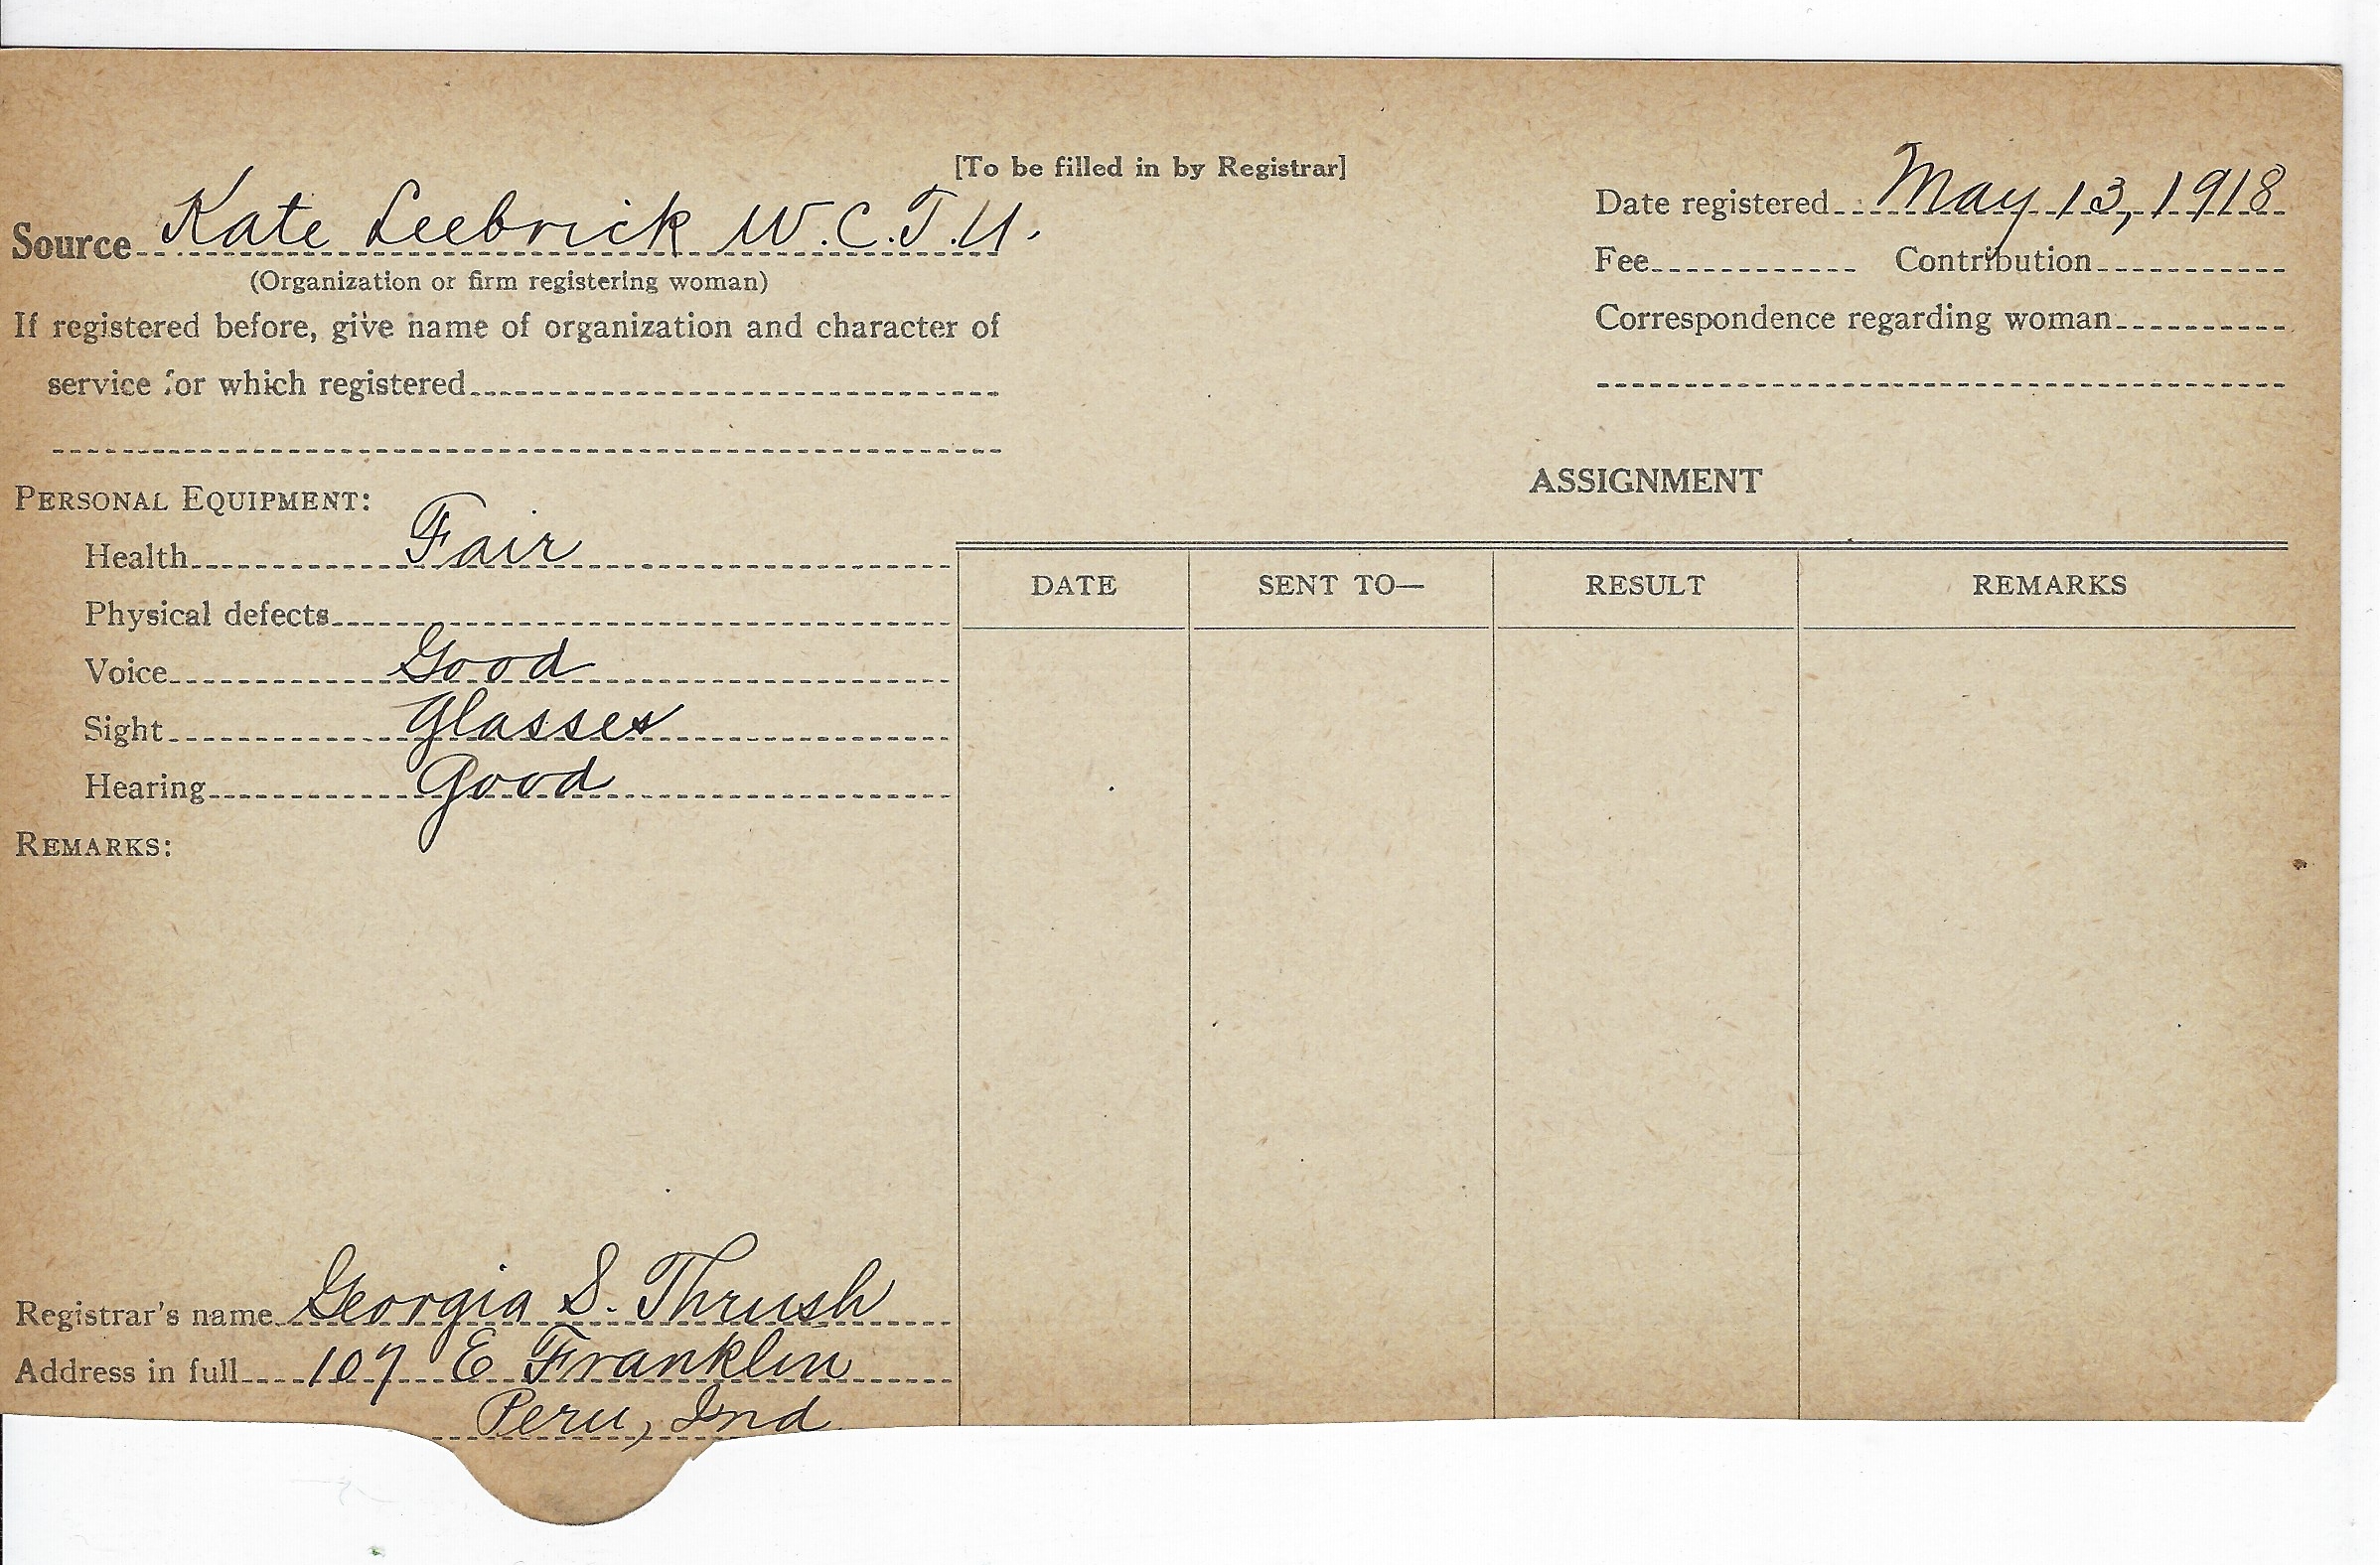 [To be filled in by Registrar]
Source Kate Leebrick W.C.T.U.
(Organization or firm registering woman)
If registered before, give name of organization and character of
service for which registered
Date registered May 13, 1918
Fee Contribution
Correspondence regarding woman
PERSONAL EQUIPMENT:
Health Fair
Physical defects
Voice Good
Sight Glasses
Hearing Good
REMARKS:
ASSIGNMENT
DATE SENT TO— RESULT REMARKS
Registrar's name Georgia S. Thrush
Address in full 107 E Franklin
Peru, Ind